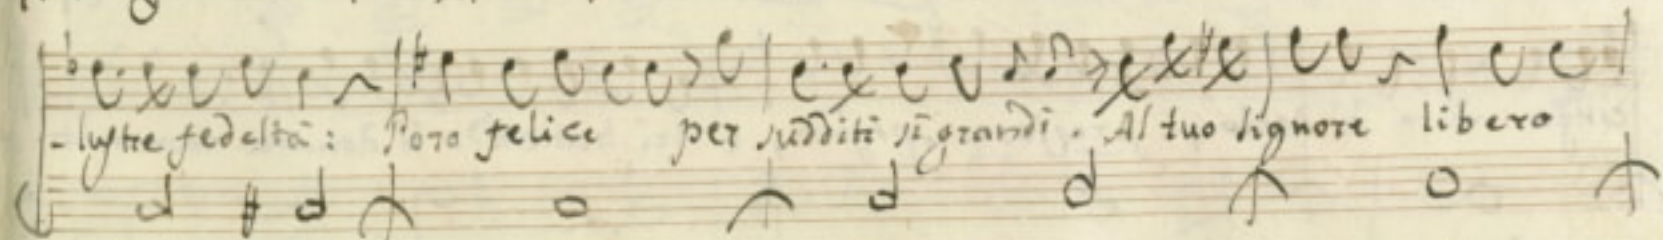 -lustre fedeltà: Poro felice per sudditi sì grandi. Al tuo signore libero